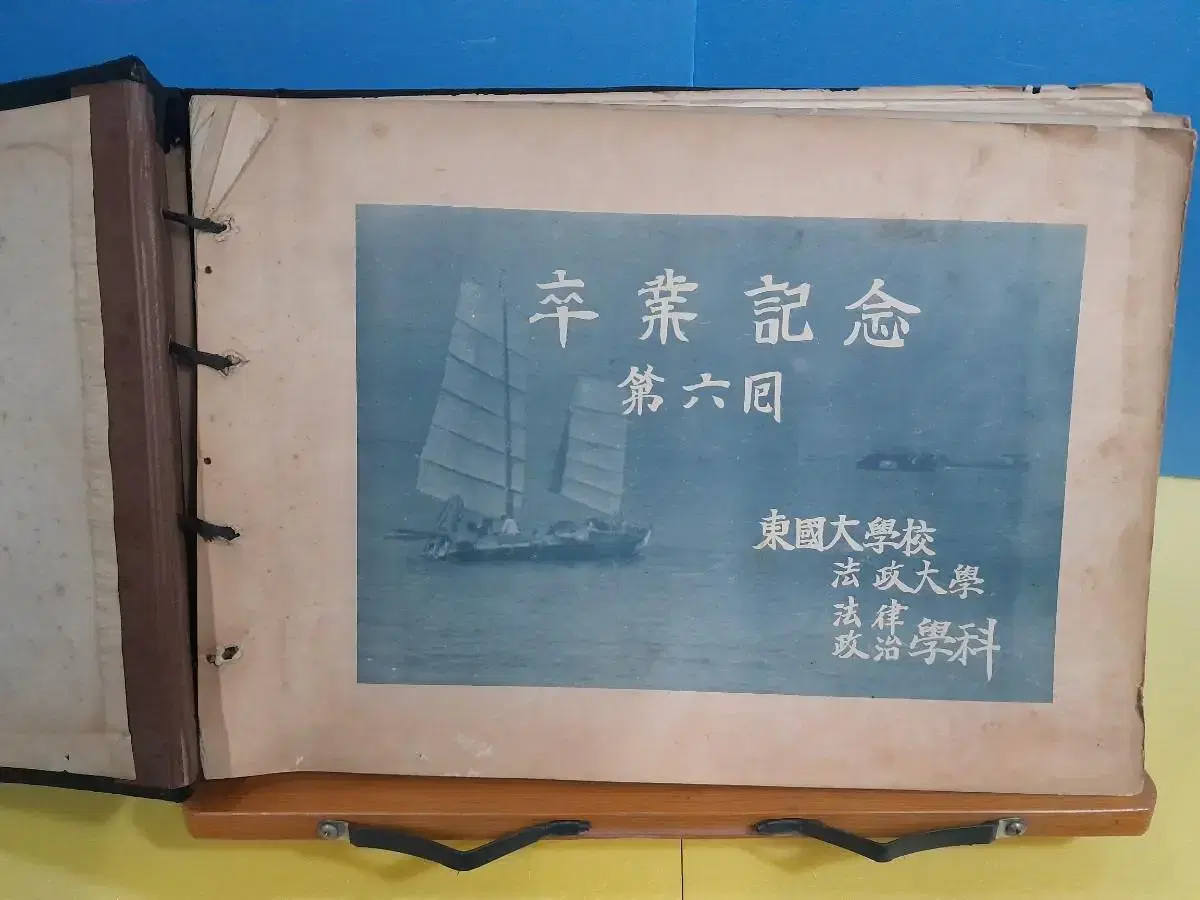 卒業記念
第六囘
東國大學校
法政大學
法律
政治學科